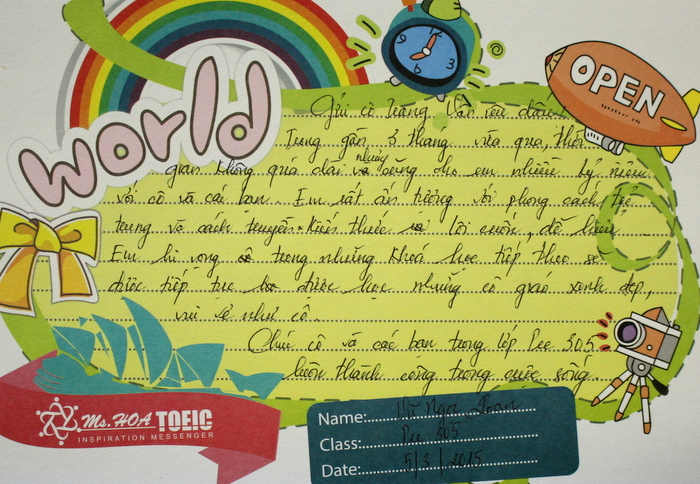 world
OPEN
Gửi cô Trang Vân yêu dấu!
Trong gần 3 tháng vừa qua, thời
gian không quá dài nhưng cũng cho em nhiều kỷ niệm
với cô và các bạn. Em rất ấn tượng với phong cách, tập
trung và cách truyền kiến thức lôi cuốn, dễ hiểu.
Em hi vọng trong những khoá học tiếp theo sẽ
được tiếp tục được học những cô giáo xinh đẹp,
vui vẻ như cô.
Chúc cô và các bạn trong lớp Pre 305
luôn thành công trong cuộc sống.
Ms. HOA TOEIC
INSPIRATION MESSENGER
Name: Ngọc
Class: Pre 305
Date: 5/3/2015